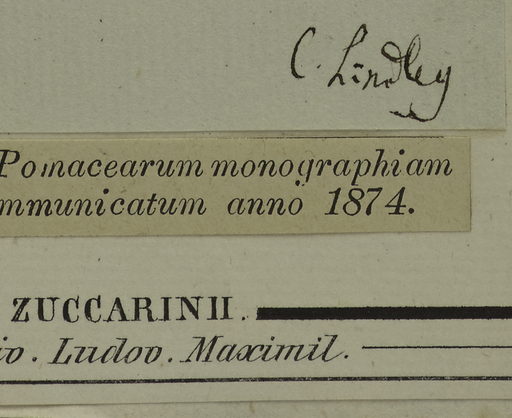 C. Lindley
Pomacearum monographiam
mmunicatum anno 1874.
ZUCCARINII.
iv. Ludov. Maximil.